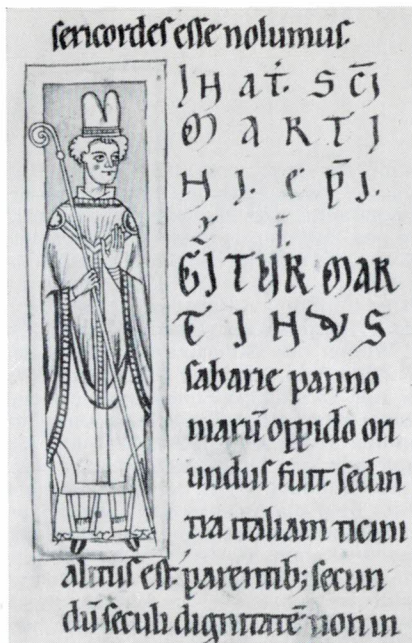 sericordes esse nolumus.
IN NAT. SCI
MARTI
NI. EPI.
L I.
GITUR MAR
TINUS
sabarie panno
niarū oppido ori
undus fuit. sed in
tra italiam ticini
altus est. parentib; secun
dū seculi dignitatē non in